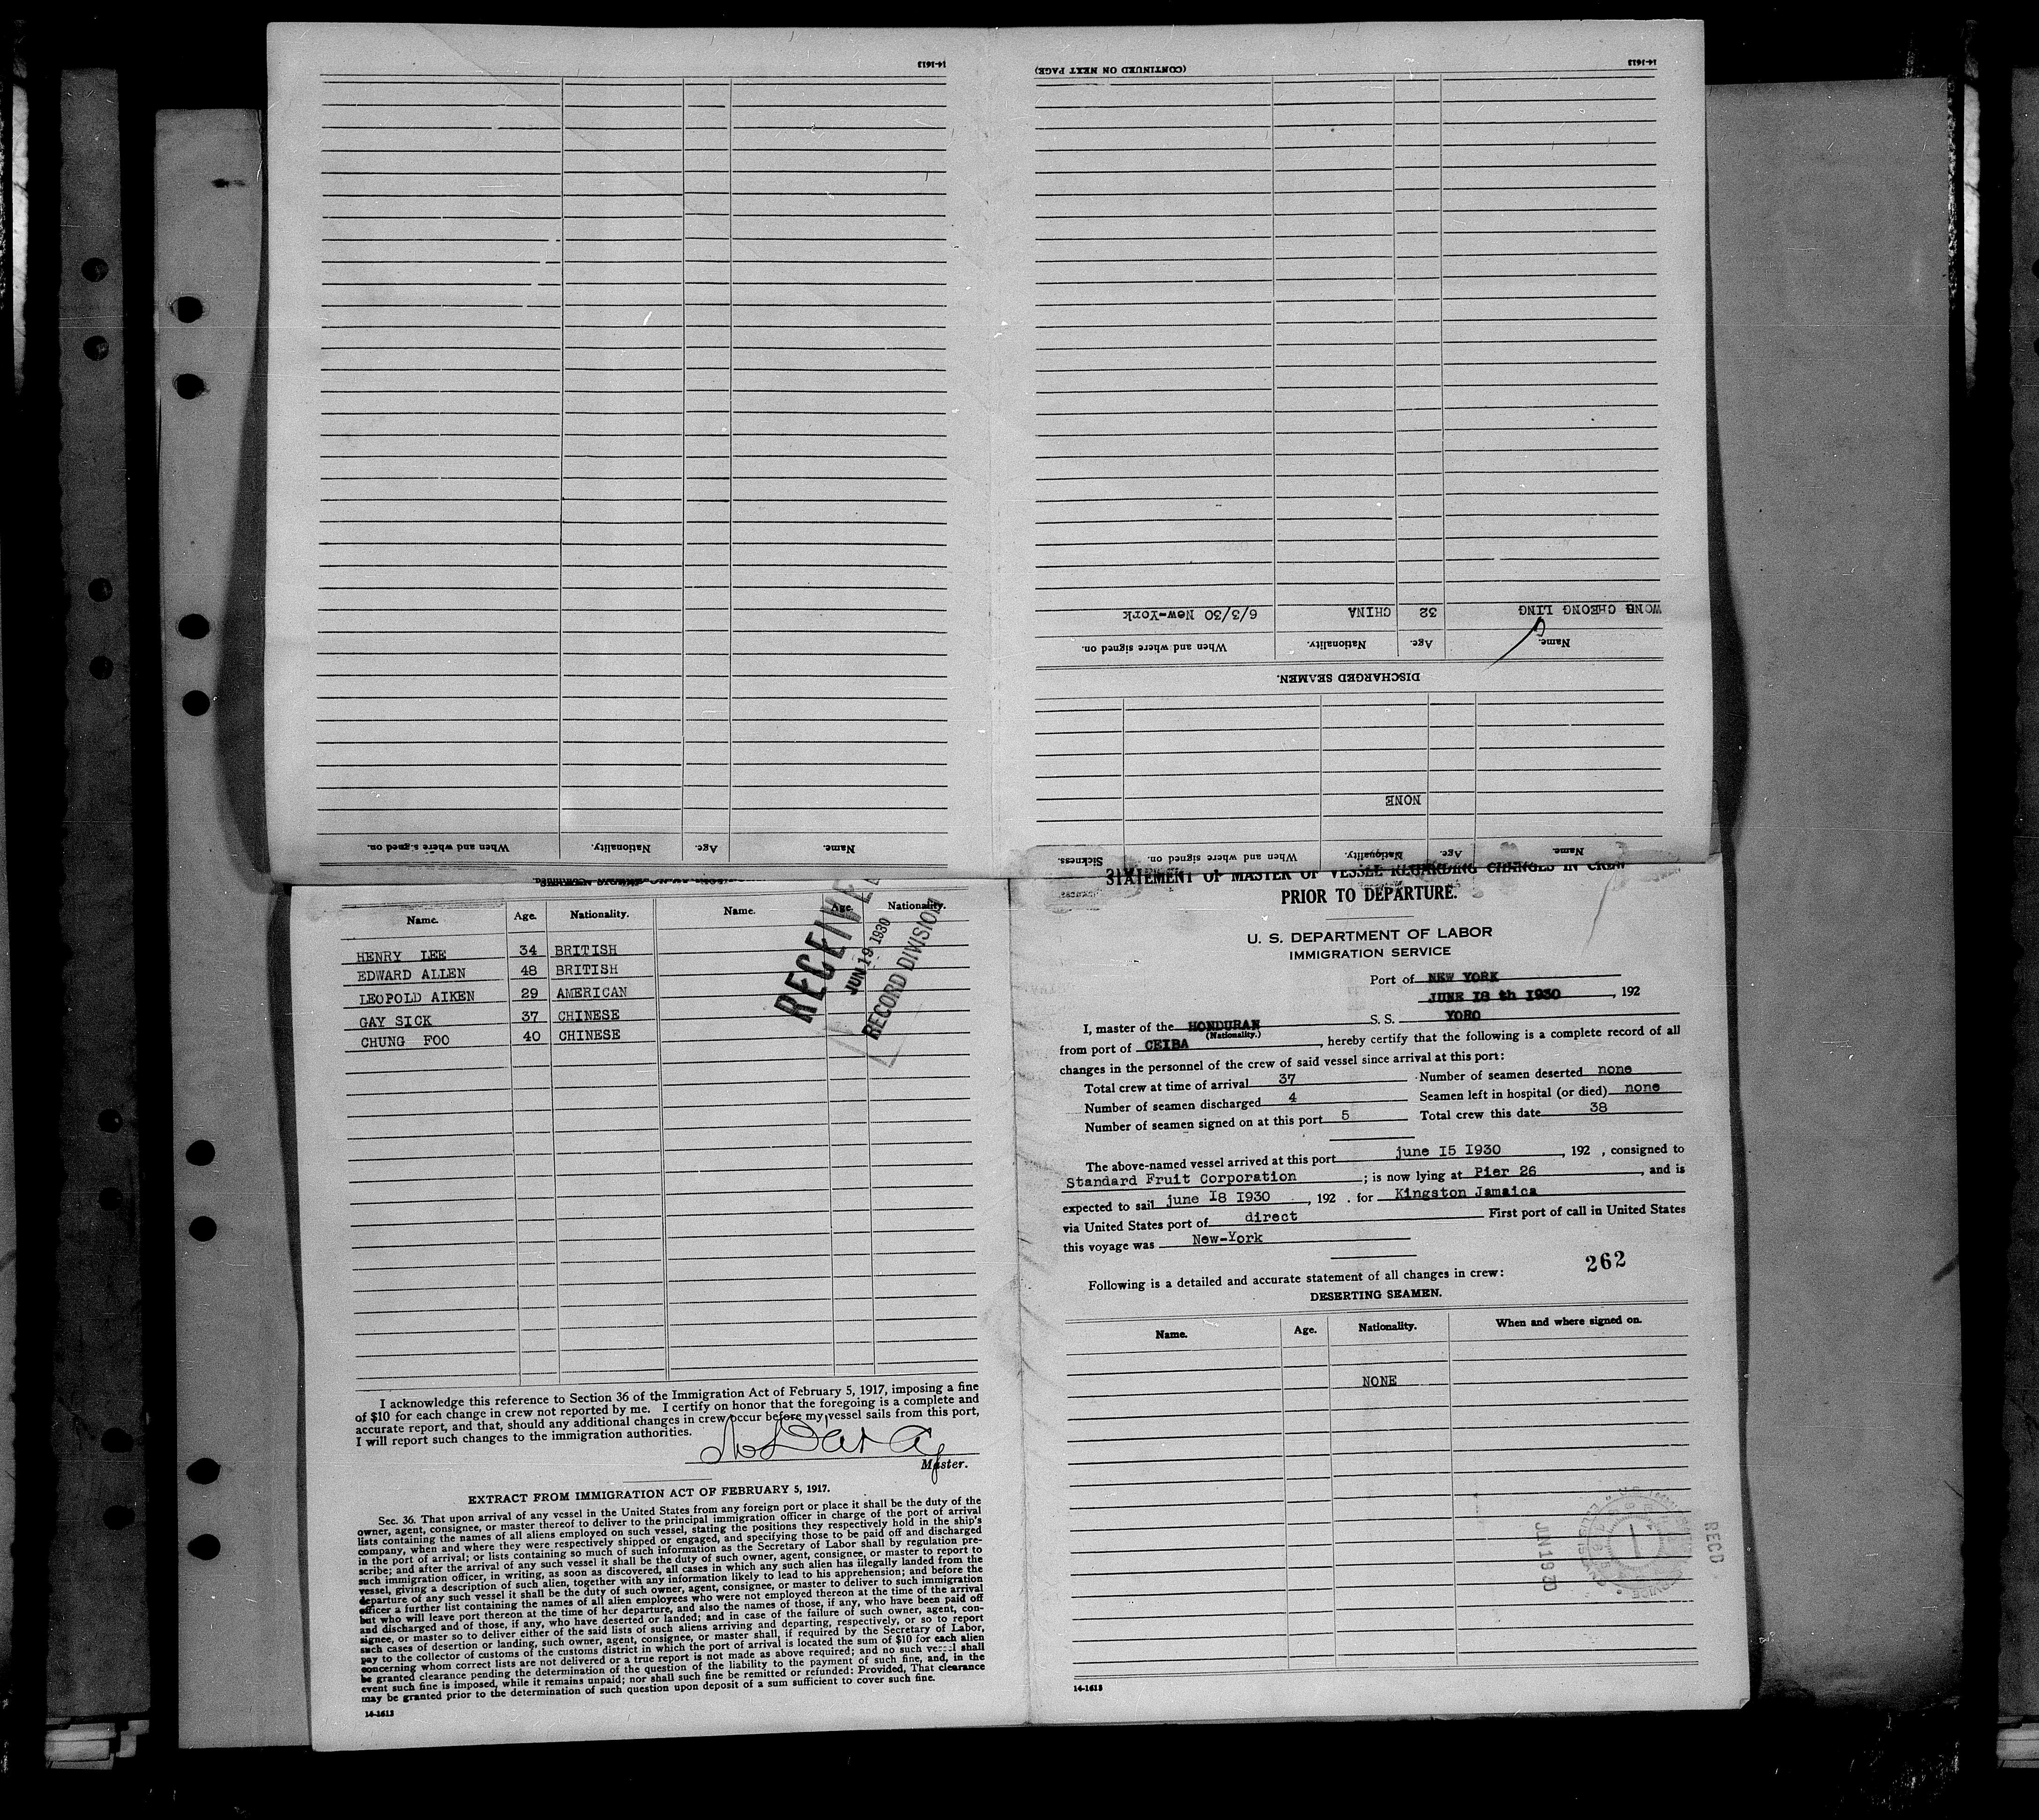 14-1613
Name. Age. Nationality. When and where signed on.
14-1613
(CONTINUED ON NEXT PAGE)
Name. Age. Nationality. When and where signed on. Sickness.
NONE
DISCHARGED SEAMEN.
Name. Age. Nationality. When and where signed on.
WONG CHEONG LING 32 CHINA 6/3/30 New-York
Name. Age. Nationality. Name. Age. Nationality.
HENRY LEE 34 BRITISH
EDWARD ALLEN 48 BRITISH
LEOPOLD AIKEN 29 AMERICAN
GAY SICK 37 CHINESE
CHUNG FOO 40 CHINESE
RECEIVED
JUN 19 1930
RECORD DIVISION
I acknowledge this reference to Section 36 of the Immigration Act of February 5, 1917, imposing a fine
of $10 for each change in crew not reported by me. I certify on honor that the foregoing is a complete and
accurate report, and that, should any additional changes in crew occur before my vessel sails from this port,
I will report such changes to the immigration authorities.
Master.
EXTRACT FROM IMMIGRATION ACT OF FEBRUARY 5, 1917.
Sec. 36. That upon arrival of any vessel in the United States from any foreign port or place it shall be the duty of the
owner, agent, consignee, or master thereof to deliver to the principal immigration officer in charge of the port of arrival
lists containing the names of all aliens employed on such vessel, stating the positions they respectively hold in the ship's
company, when and where they were respectively shipped or engaged, and specifying those to be paid off and discharged
in the port of arrival; or lists containing so much of such information as the Secretary of Labor shall by regulation pre-
scribe; and after the arrival of any such vessel it shall be the duty of such owner, agent, consignee, or master to report to
such immigration officer, in writing, as soon as discovered, all cases in which any such alien has illegally landed from the
vessel, giving a description of such alien, together with any information likely to lead to his apprehension; and before the
departure of any such vessel it shall be the duty of such owner, agent, consignee, or master to deliver to such immigration
officer a further list containing the names of all alien employees who were not employed thereon at the time of the arrival
but who will leave port thereon at the time of her departure, and also the names of those, if any, who have been paid off
and discharged and of those, if any, who have deserted or landed; and in case of the failure of such owner, agent, con-
signee, or master so to deliver either of the said lists of such aliens arriving and departing, respectively, or so to report
such cases of desertion or landing, such owner, agent, consignee, or master shall, if required by the Secretary of Labor,
pay to the collector of customs of the customs district in which the port of arrival is located the sum of $10 for each alien
concerning whom correct lists are not delivered or a true report is not made as above required; and no such vessel shall
be granted clearance pending the determination of the question of the liability to the payment of such fine, and, in the
event such fine is imposed, while it remains unpaid; nor shall such fine be remitted or refunded: Provided, That clearance
may be granted prior to the determination of such question upon deposit of a sum sufficient to cover such fine.
14-1613
STATEMENT OF MASTER OF VESSEL REGARDING CHANGES IN CREW
PRIOR TO DEPARTURE.
U. S. DEPARTMENT OF LABOR
IMMIGRATION SERVICE
Port of NEW YORK
JUNE I8 th I930, 192
I, master of the HONDURAN S. S. YORO
(Nationality.)
from port of CEIBA, hereby certify that the following is a complete record of all
changes in the personnel of the crew of said vessel since arrival at this port:
Total crew at time of arrival 37 Number of seamen deserted none
Number of seamen discharged 4 Seamen left in hospital (or died) none
Number of seamen signed on at this port 5 Total crew this date 38
The above-named vessel arrived at this port june I5 I930, 192 , consigned to
Standard Fruit Corporation; is now lying at Pier 26, and is
expected to sail june I8 I930, 192 . for Kingston Jamaica
via United States port of direct First port of call in United States
this voyage was New-York
262
Following is a detailed and accurate statement of all changes in crew:
DESERTING SEAMEN.
Name. Age. Nationality. When and where signed on.
NONE
RECD
14-1613